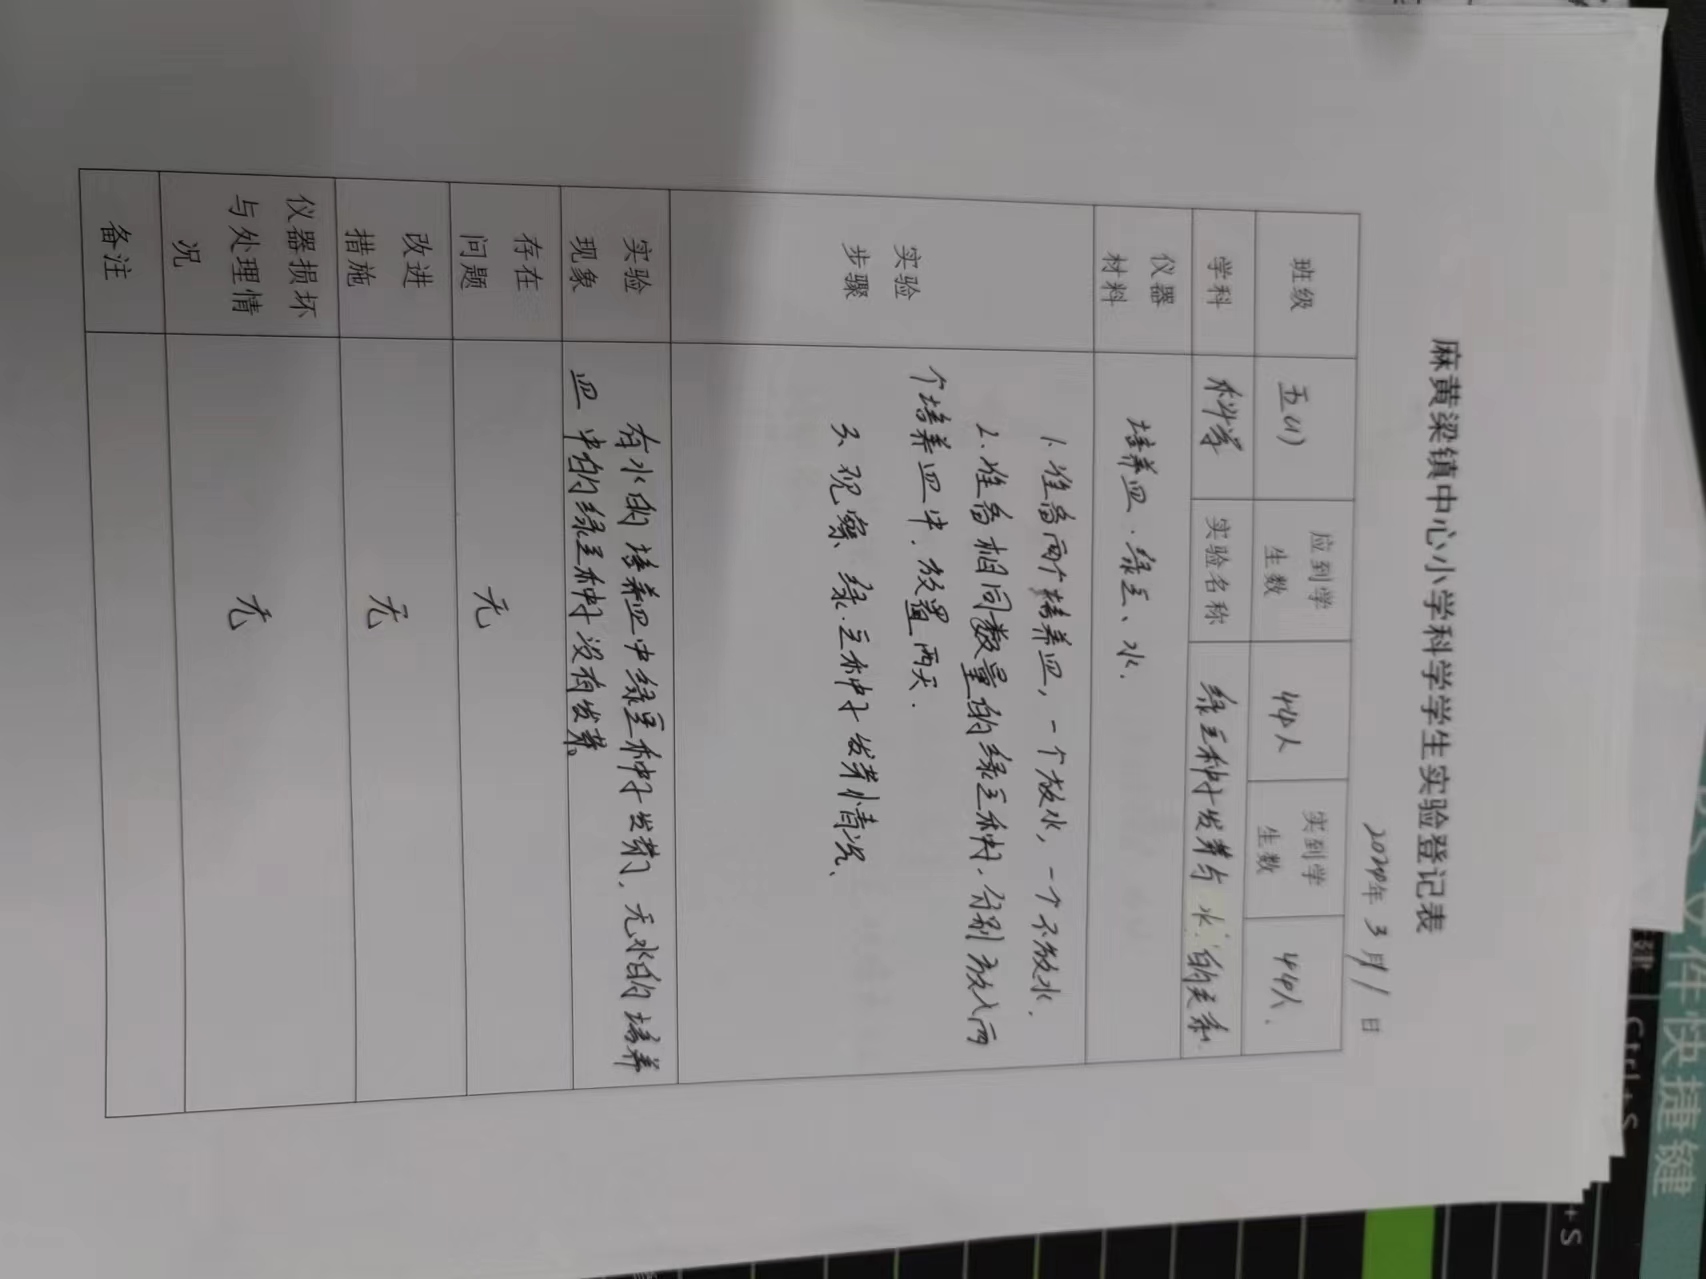 麻黄梁镇中心小学科学学生实验登记表
2024年 3月 1 日
班级 五(1) 应到学生数 44人 实到学生数 44人.
学科 科学 实验名称 绿豆种子发芽与水的关系
仪器材料 培养皿.绿豆、水.
实验步骤
1.准备两个培养皿,一个放水,一个不放水.
2.准备相同数量的绿豆种子.分别放入两
个培养皿中.放置两天.
3、观察绿豆种子发芽情况、
实验现象
有水的培养皿中绿豆种子发芽了.无水的培养
皿中的绿豆种子没有发芽。
存在问题 无
改进措施 无
仪器损坏与处理情况 无
备注
件快捷键
Ctrl+S
+S